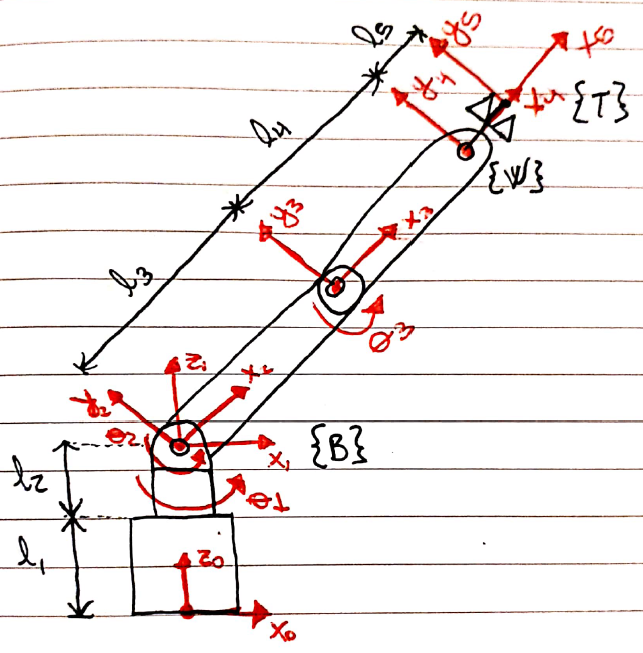 l5
y5
x5
y4
x4
{T}
l4
{W}
y3
x3
l3
θ3
z1
x2
y2
θ2
x1
{B}
l2
θ1
l1
z0
x0